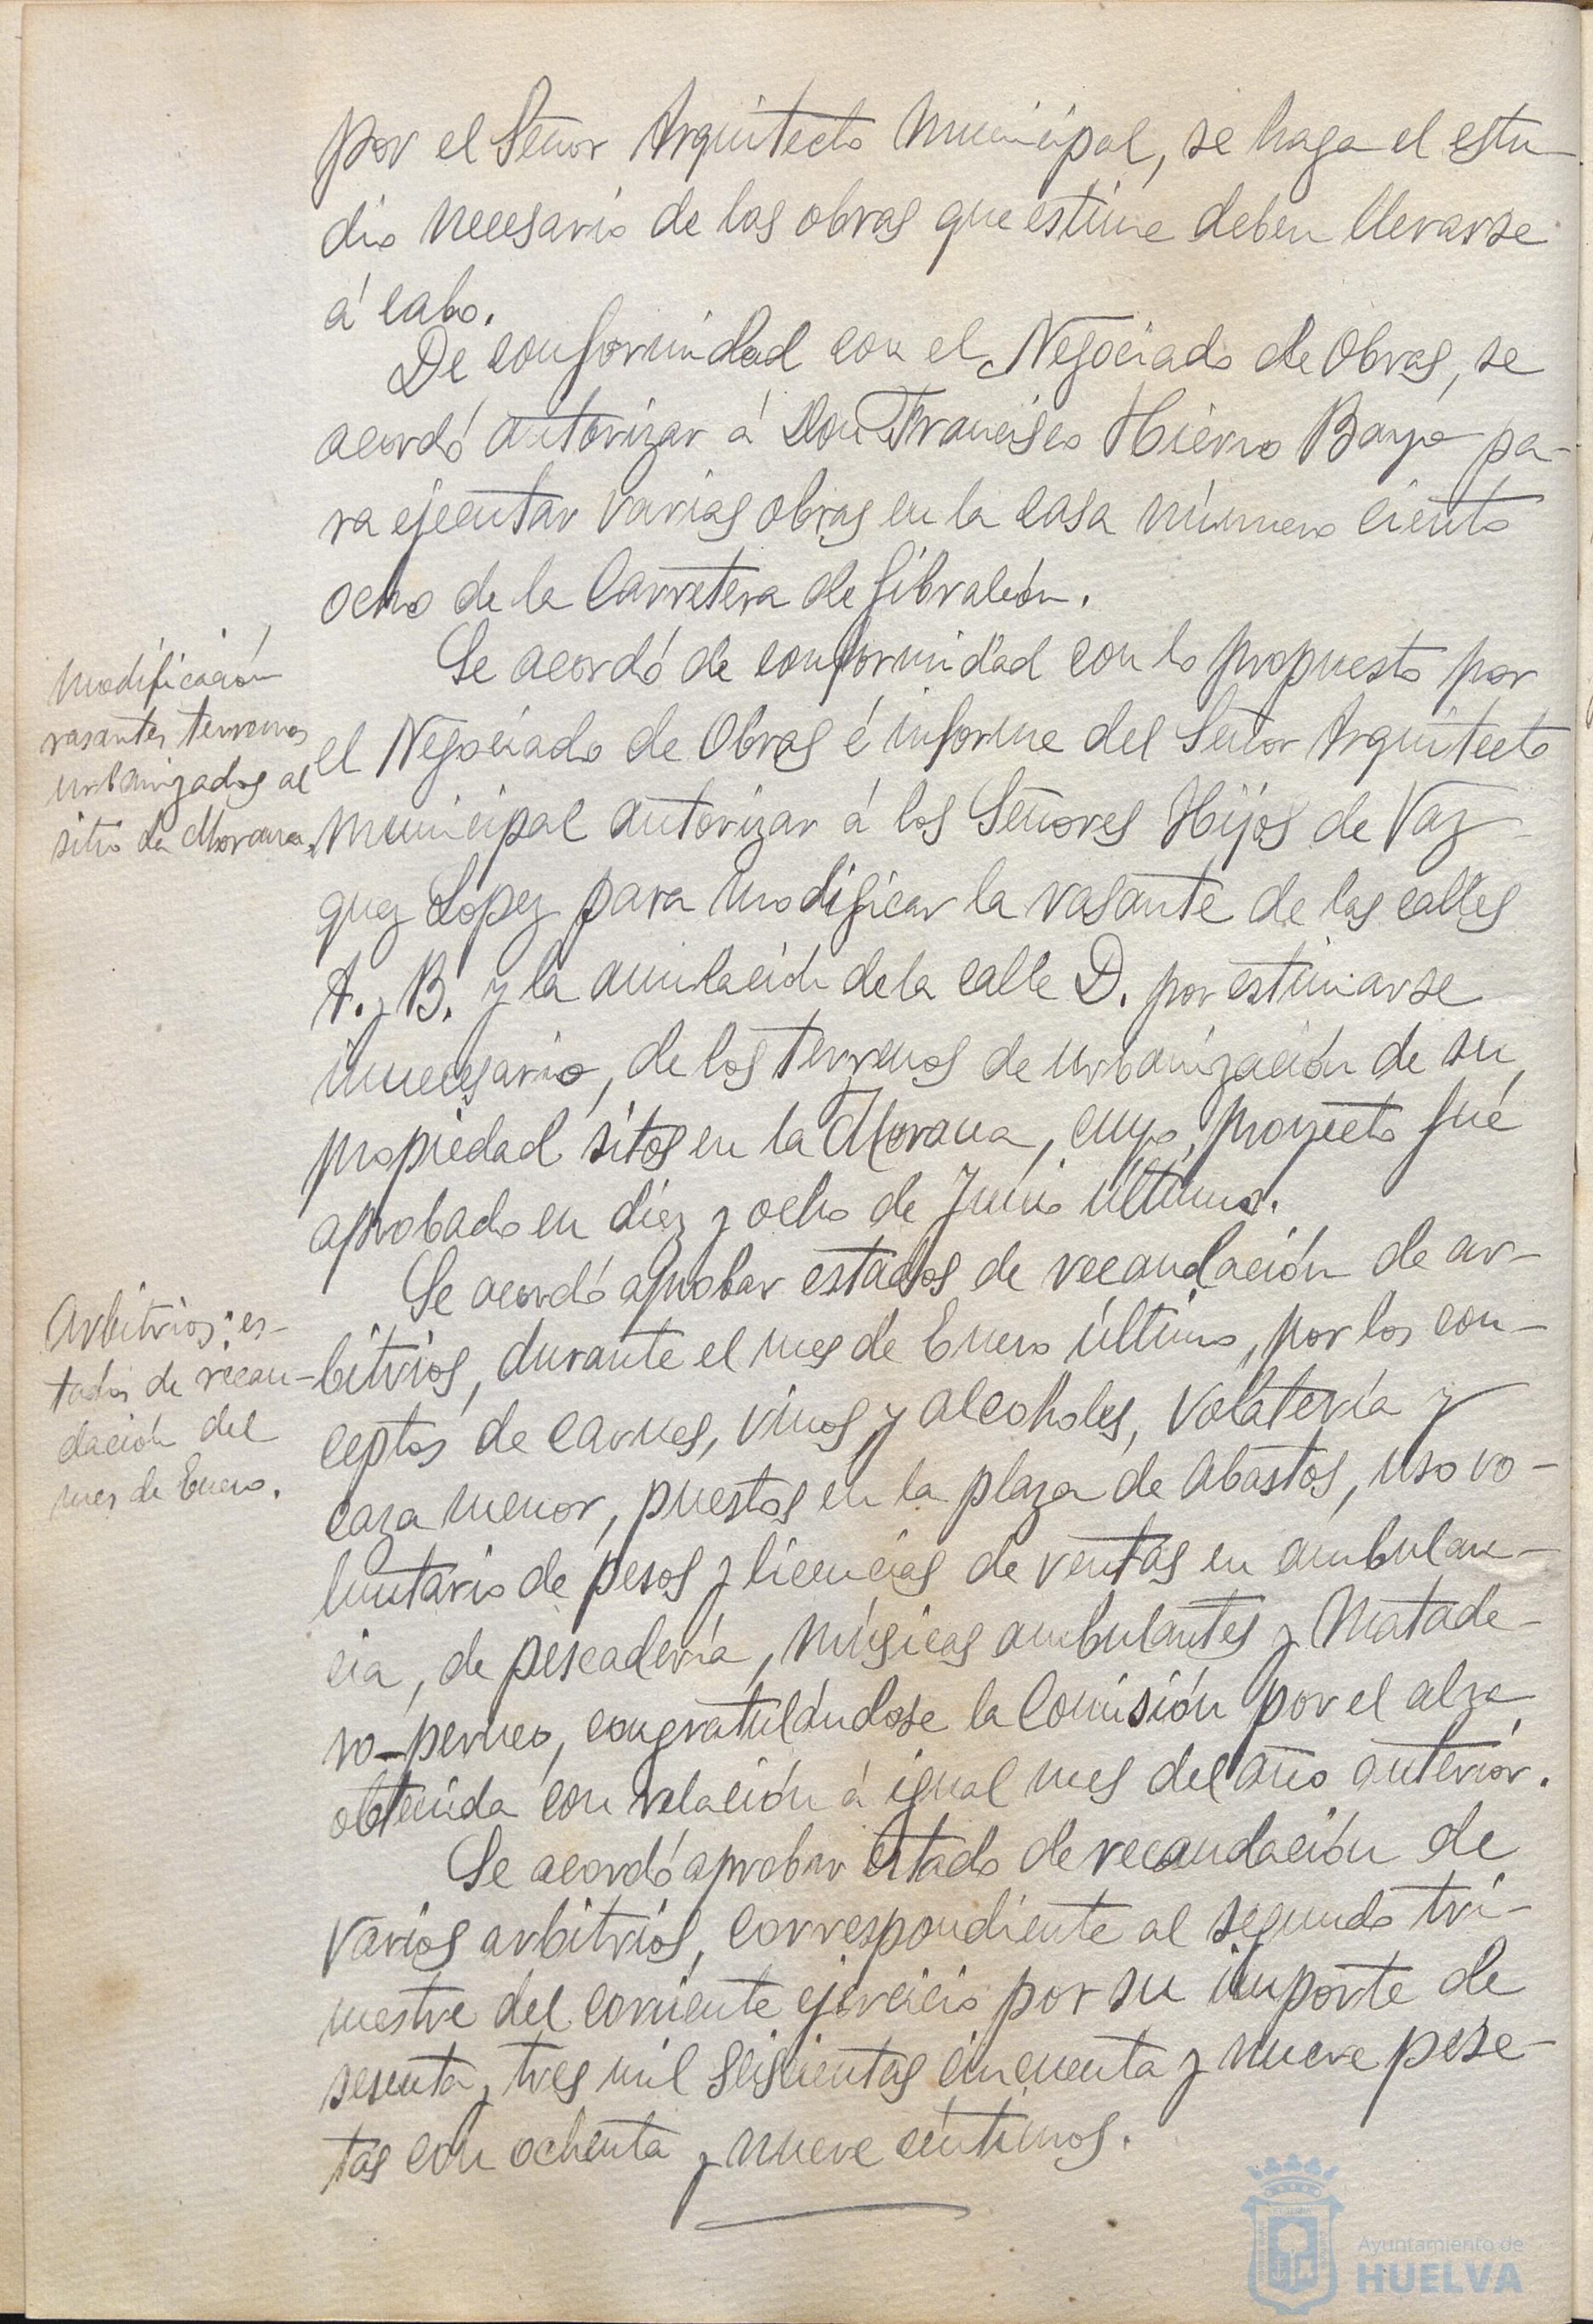 por el Señor Arquitecto Municipal, se haga el estu-
dio necesario de las obras que estime deben llevarse
á cabo.
De conformidad con el Negociado de Obras, se
acordó autorizar á Don Francisco Hierro Bayo pa-
ra ejecutar varias obras en la casa número ciento
ocho de la Carretera de Gibraleón.
Modificación
rasantes terrenos
urbanizados al
sitio La Morana.
Se acordó de conformidad con lo propuesto por
el Negociado de Obras é informe del Señor Arquitecto
Municipal autorizar á los Señores Hijos de Vaz-
quez López para modificar la rasante de las calles
A. y B. y la anulación de la calle D. por estimarse
innecesario, de los terrenos de urbanización de su
propiedad sitos en la Morana, cuyo proyecto fué
aprobado en diez y ocho de Junio último.
Arbitrios: es-
tados de recau-
dación del
mes de Enero.
Se acordó aprobar estados de recaudación de ar-
bitrios, durante el mes de Enero último, por los con-
ceptos de carnes, vinos y alcoholes, volatería y
caza menor, puestos en la plaza de Abastos, uso vo-
luntario de pesos y licencias de ventas en ambulan-
cia, de pescadería, músicas ambulantes y Matade-
ro-perneo, congratulándose la Comisión por el alza
obtenida con relación á igual mes del año anterior.
Se acordó aprobar Estado de recaudación de
varios arbitrios, correspondiente al segundo tri-
mestre del corriente ejercicio por su importe de
sesenta y tres mil seiscientas cincuenta y nueve pese-
tas con ochenta y nueve céntimos.
Ayuntamiento de
HUELVA